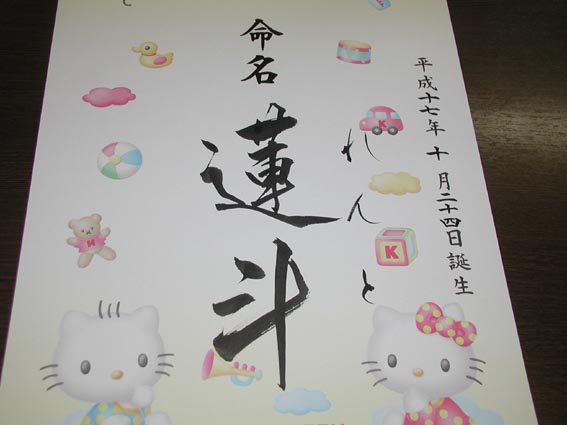 平成十七年 十月二十四日誕生
命名
蓮斗
れんと
K
K